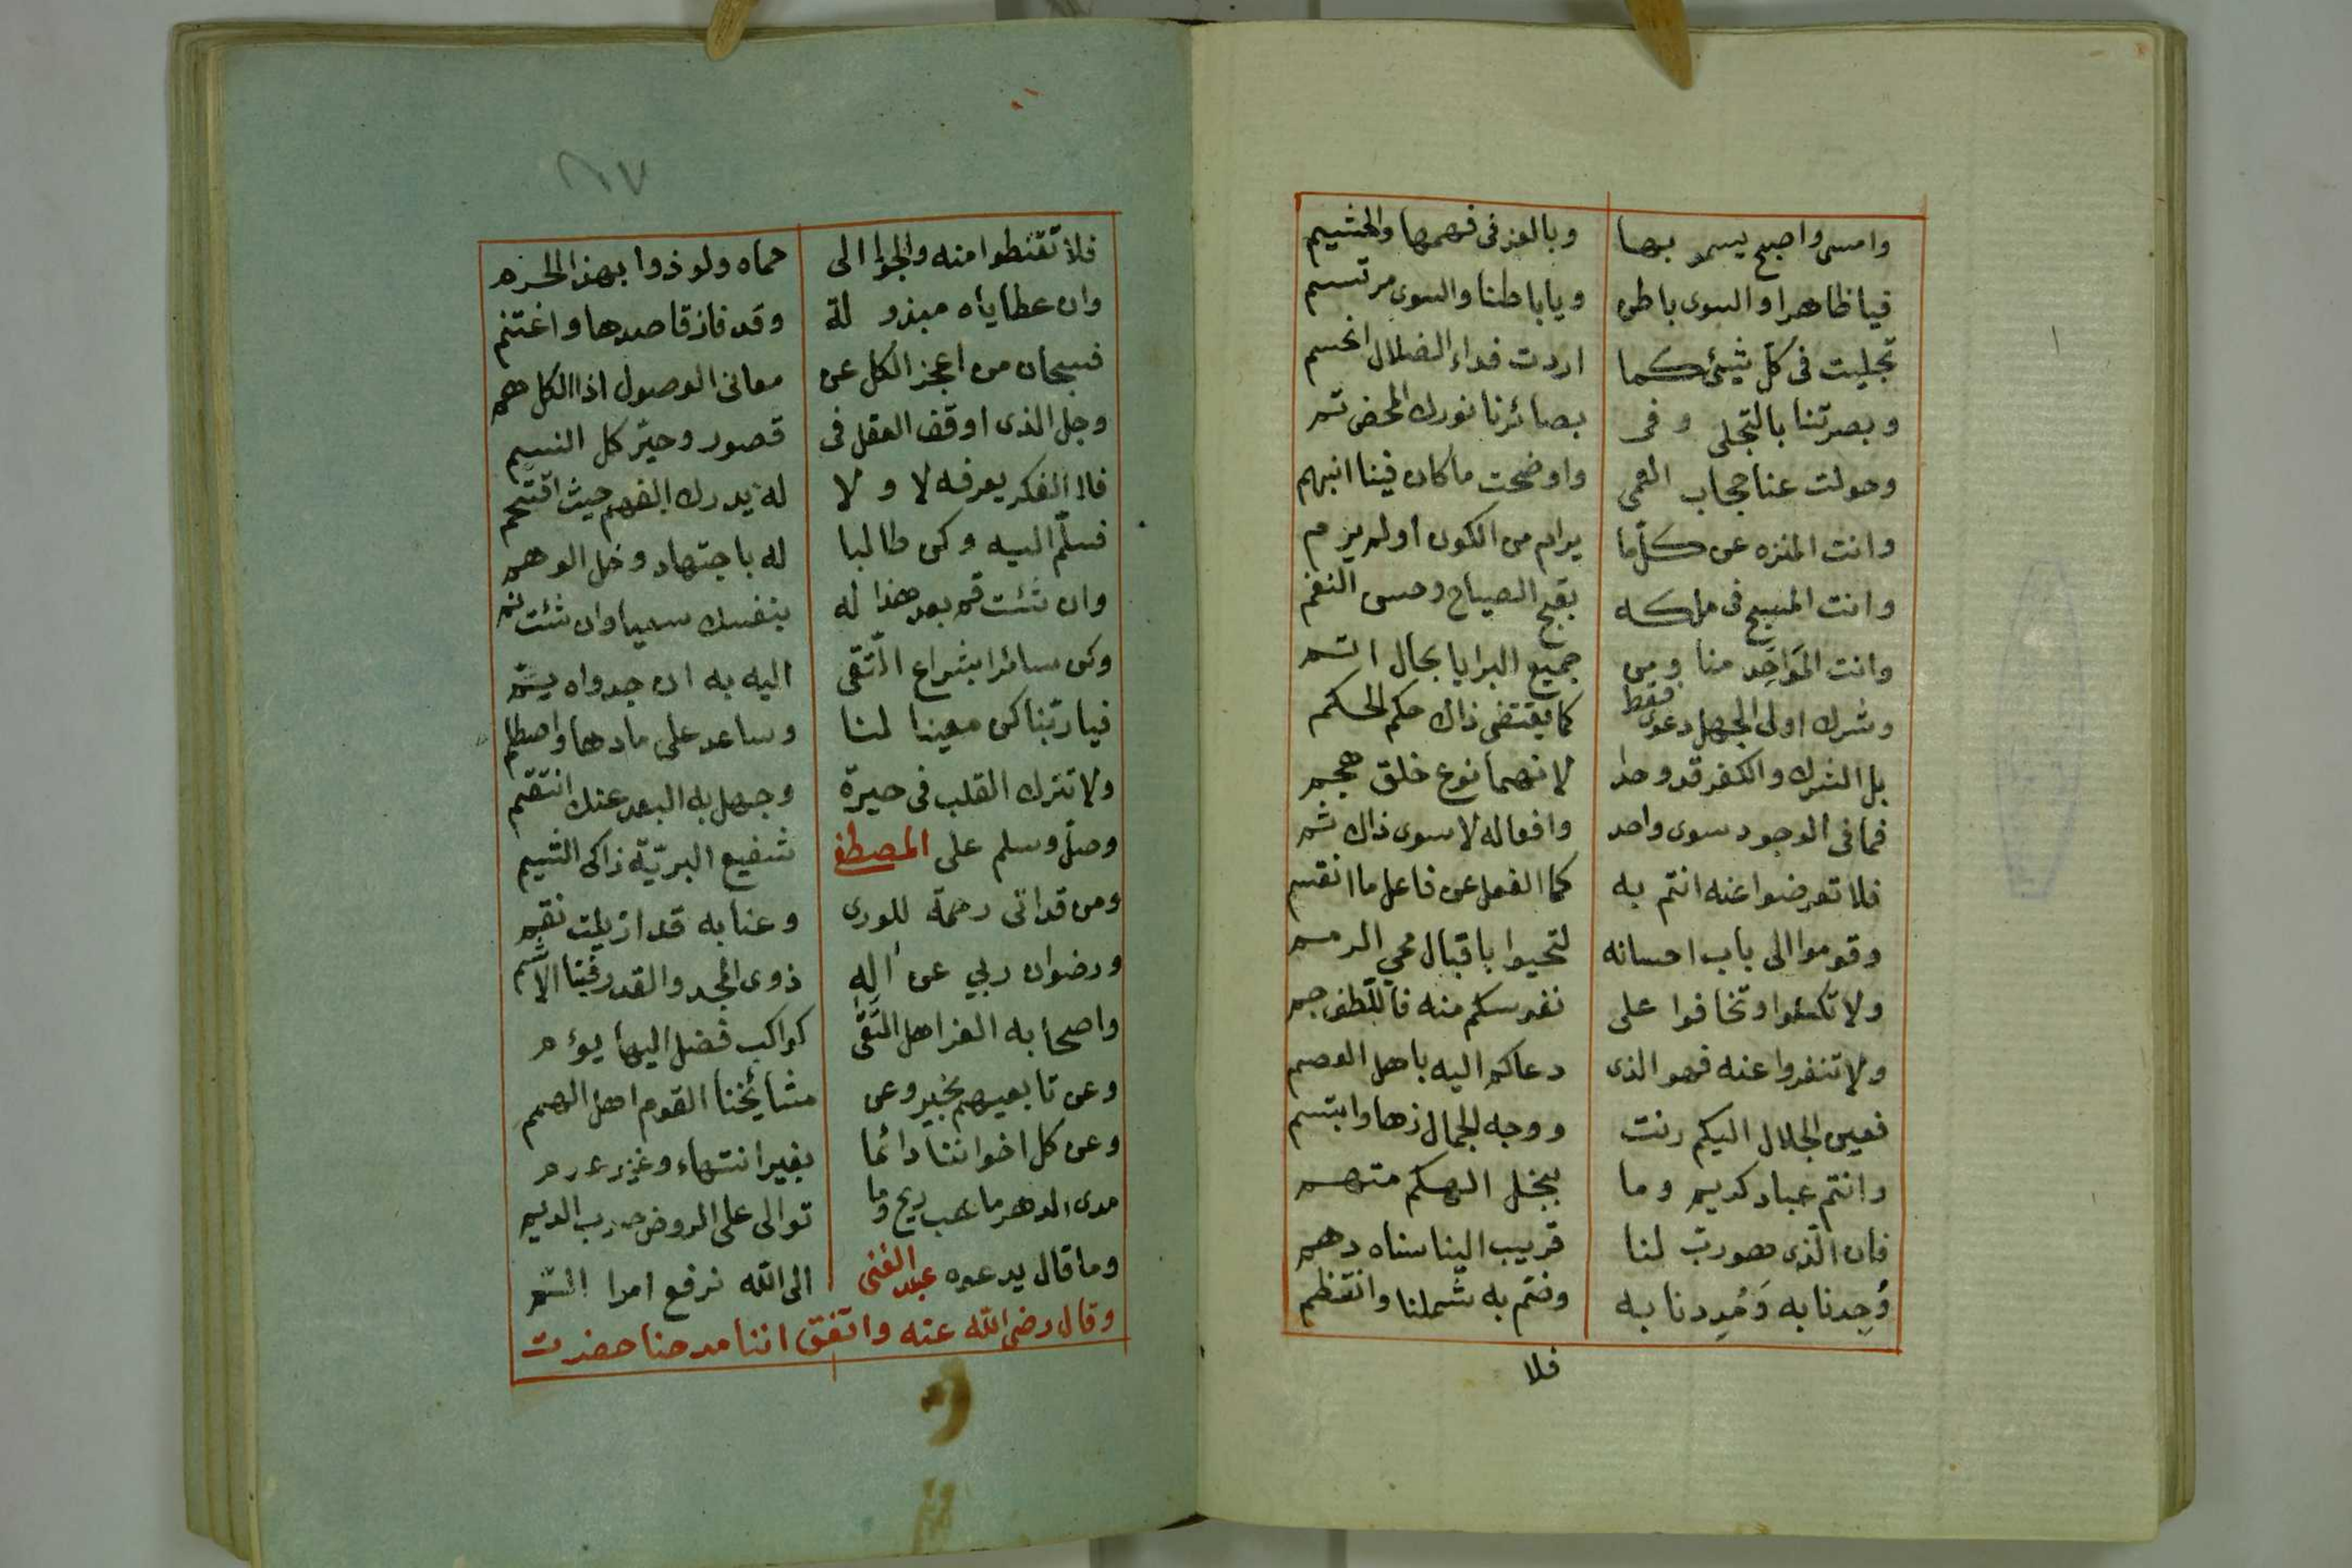 وامسى واصبح يسمو بها وبالعز في فهمها والحشيم
فيا ظاهرا والسوى باطن ويا باطنا والسوى مرتسم
تجليت في كل شيئ كما اردت فداء الضلال انحسم
وبصرتنا بالتجلي وفي بصائرنا نورك المحض تم
وحولت عنا حجاب العمى واوضحت ما كان فينا انبهم
وانت المنزه عن كلّ ما يرام من الكون او لم يرم
وانت المسبح في ملكه بقبح الصياح وحسن النغم
وانت المواحد منا ومن جميع البرايا بحال اتسم
وشرك اولى الجهل دعوى فقط كما يقتضى ذاك حكم الحكم
بل الشرك والكفر قد وحدا لانهما نوع خلق هجم
فما في الوجود سوى واحد وافعاله لا سوى ذاك ثم
فلا تعرضوا عنه انتم به كما الفعل عن فاعل ما انقسم
وقوموا الى باب احسانه لتحيوا باقبال محي الرمم
ولا تكسلوا وتخافوا على نفوسكم منه فاللّطف جم
ولا تنفروا عنه فهو الذى دعاكم اليه باهل العصم
فعين الجلال اليكم رنت ووجه الجمال زها وابتسم
وانتم عباد كريم وما ببخل الهكم متهم
فان الّذى صورت لنا قريب الينا سناه دهم
وُجِدنا به وَمُدِدنا به وضم به شملنا وانتظم
فلا
٦٧
فلا تقنطوا منه والجوا الى حماه ولوذوا بهذا الحرم
وان عطاياه مبذولة وقد فاز قاصدها واغتنم
فسبحان من اعجز الكل عن معانى الوصول اذا الكل هم
وجل الذى اوقف العقل في قصور وحيّر كل النسيم
فلا الفكر يعرفه لا ولا له يدرك الفهم حيث اقتحم
فسلّم اليه وكن طالبا له باجتهاد وخل الوهم
وان شئت قم بعد هذا له بنفسك سعيا وان شئت نم
وكن سائرا بشراع التّقى اليه به ان جدواه يم
فيا ربّنا كن معينا لنا وساعد على ما دها واصطلم
ولا تترك القلب في حيرة وجهل به البعد عنك انتقم
وصلّ وسلم على المصطفى شفيع البريّة زاكى الشيم
ومن قد اتى رحمة للورى وعنا به قد ازيلت نقم
ورضوان ربي عن آله ذوى المجد والقدر فينا الاشم
واصحابه الغز اهل التّقى كواكب فضل اليها يؤم
وعن تابعيهم بخير وعن مشائخنا القوم اهل الهمم
وعن كل اخواننا دائما بغير انتهاء وغير
مدى الدهر ما هب ريح وما توالى على الروض صوب الديم
وما قال يدعوه عبد الغنى الى الله نرفع امرا التم
وقال رضى الله عنه واتفق اننا مدحنا حضرت